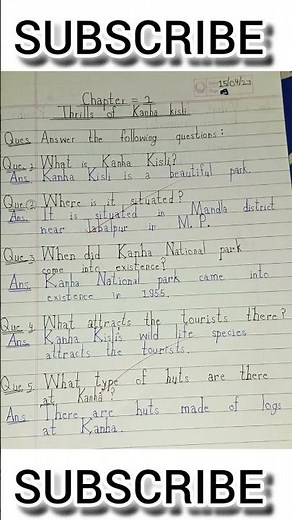 SUBSCRIBE
15/04/23
Chapter = 2
Thrills of Kanha kisli
Ques Answer the following questions:
Que 1 What is Kanha Kisli?
Ans Kanha Kisli is a beautiful park.
Que 2 Where is it situated?
Ans It is situated in Mandla district
near Jabalpur in M. P.
Que 3 When did Kanha National park
come into existence?
Ans Kanha National park came into
existence in 1955.
Que 4 What attracts the tourists there?
Ans Kanha Kisli's wild life species
attracts the tourists.
Que 5. What type of huts are there
at Kanha?
Ans There are huts made of logs
at Kanha.
SUBSCRIBE